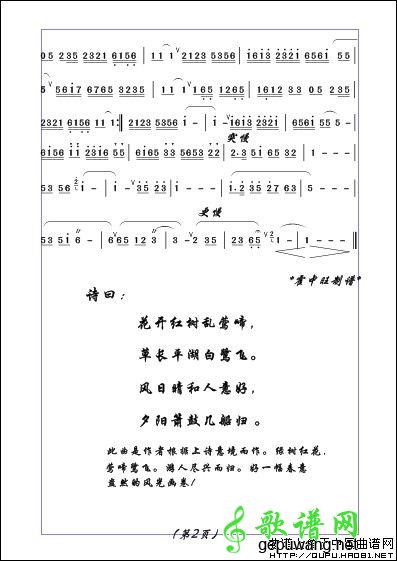 05 235 2321 6156 | 11 1 2123 5356 | 1613 2321 6561 55
5 5617 6765 3235 | 11 1 165 1265 | 1612 33 05 235
2321 6156 11 1 :| 2123 5356 i - | i - 1613 2321 | 6561 55 5 -
突慢
6156 11 2316 55 | 6165 33 5653 22 | 2.3 51 65 32 | 1 - - -
53 56 i - | i - 35 23 | i - - - | i.2 35 27 63 | 5 - - -
更慢
53 51 6 - | 665 12 3 | 3 - 2 35 | 23 65 1 - | 1 - - -
"霍中旺制谱"
诗曰：
花开红树乱莺啼，
草长平湖白鹭飞。
风日晴和人意好，
夕阳箫鼓几船归。
此曲是作者根据上诗意境而作。绿树红花，
莺啼鹭飞。游人尽兴而归。好一幅春意
盎然的风光画卷！
（第2页）
歌谱网
gepuwang.net
中国曲谱网
HTTP://QUPU.HAO81.NET